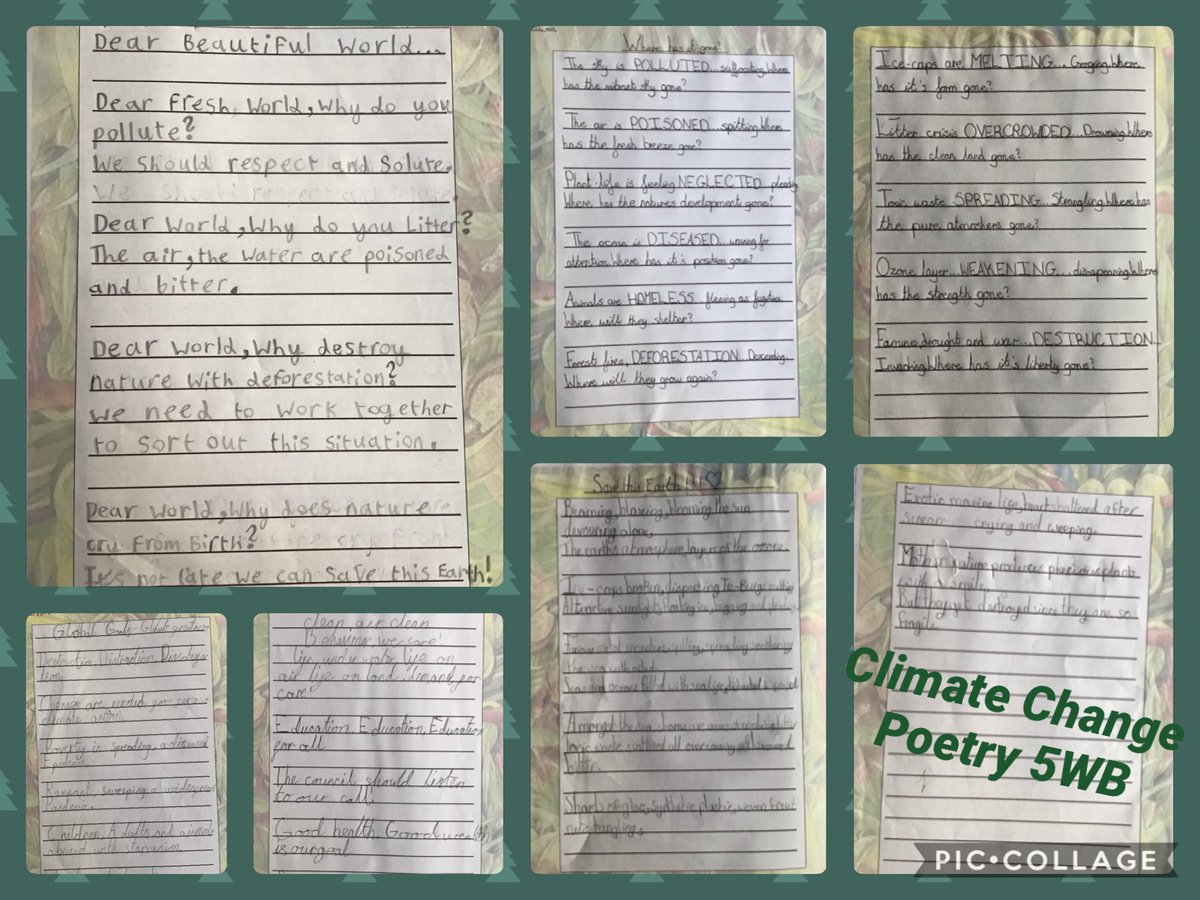 Dear Beautiful World...
Dear Fresh World, Why do you
pollute?
We Should respect and Solute.
Dear World, Why do you Litter?
The air, the water are poisoned
and bitter.
Dear World, Why destroy
nature with deforestation?
We need to work together
to sort out this situation.
Dear World, Why does nature
cry from Birth?
It's not late we can save this Earth!
Where has it gone?
The sky is POLLUTED... suffocating. Where
has the vibrant sky gone?
The air is POISONED... spitting. Where
has the fresh breeze gone?
Plant-life is feeling NEGLECTED...
Where has the natures development gone?
The ocean is DISEASED... waving for
attention. Where has it's position gone?
Animals are HOMELESS... fleeing as fugitives
Where will they shelter?
Forest fires, DEFORESTATION. Descending...
Where will they grow again?
Ice-caps are MELTING... Where
has it's form gone?
Litter crisis OVERCROWDED... Drowning. Where
has the clean land gone?
Toxic waste SPREADING... Strangling. Where has
the pure atmosphere gone?
Ozone layer... WEAKENING... dissapearing. Where
has the strength gone?
Famine, drought and war... DESTRUCTION...
Invading. Where has it's liberty gone?
Save this Earth!!!
Beaming, blazing, blooming the sun
devouring alone.
The earths atmosphere, layers of the ozone.
Ice-caps broken,
the sea with oiled.
Seasoned oceans filled with sealife,
Amongst the sea
bitter.
Shards of glass, synthetic plastic, woven fruit
nets tangling.
Exotic marine life, heart shattered after
scream crying and weeping.
Mother nature produces precious plants
with a smile,
But they get destroyed since they are so
fragile.
Global Goals- Global greatness
Destruction, Distraction,
Change are needed for
climate action.
Poverty is spreading, a
Epidemic.
Rampant, sweeping a widespread
Pandemic.
Children, Adults and animals
abused with starvation.
clean air clean
Behaviour we care!
life under water, life on
air life on land, demand for
care!
Education, Education, Education
for all
The council should listen
to our call!
Good health, Good wealth
is our goal
Climate Change
Poetry 5WB
PIC•COLLAGE